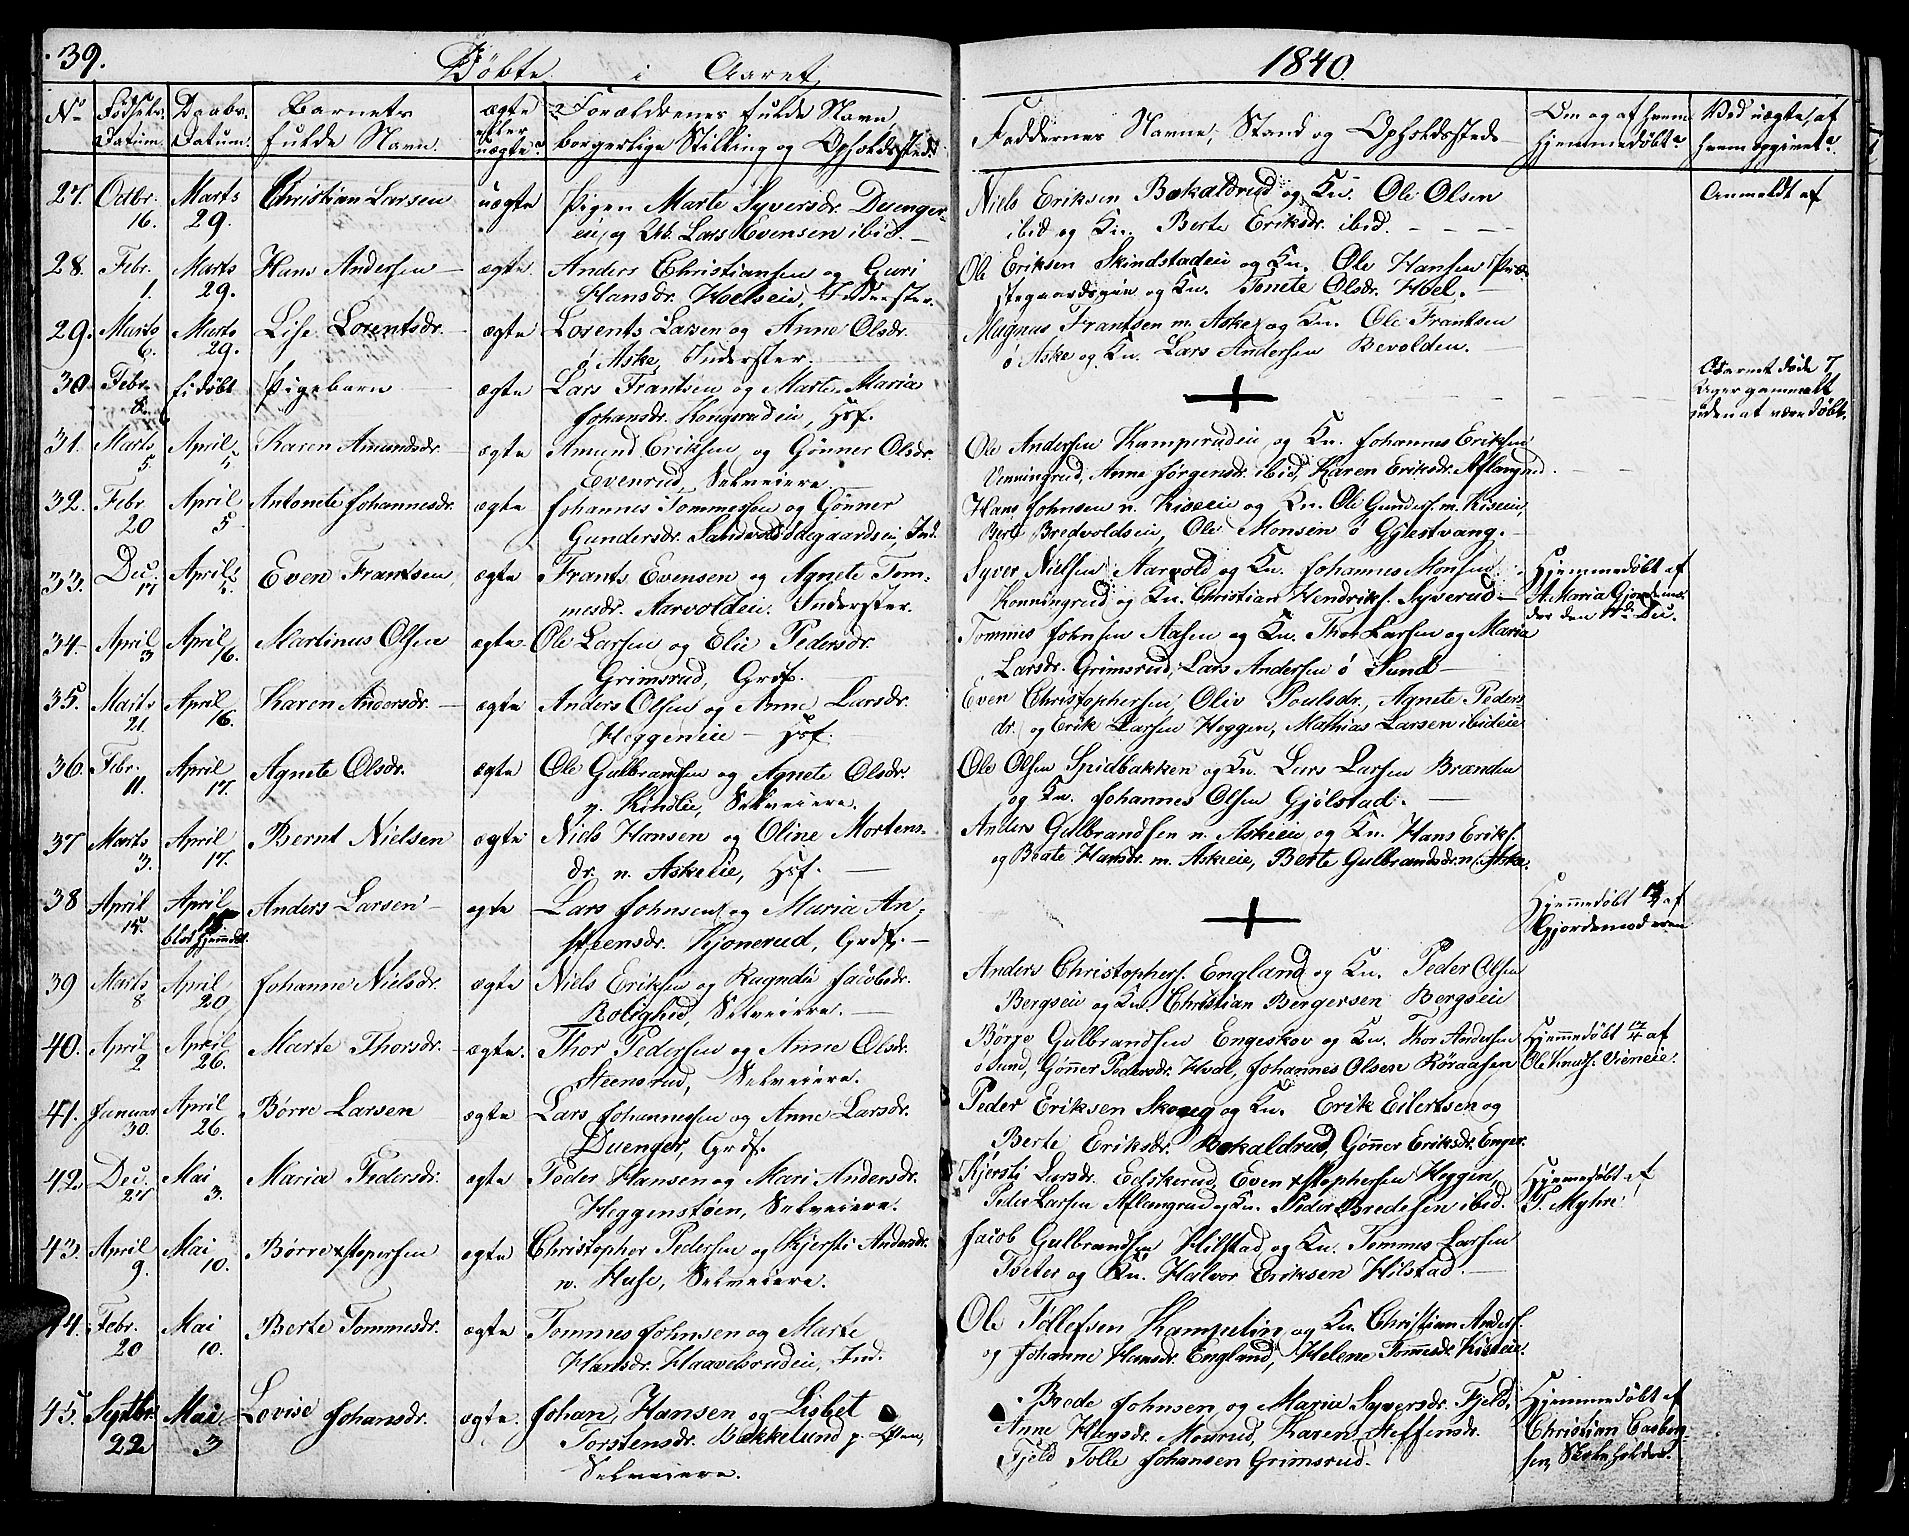 39.
Døbte i Aaret
1840.
No Fødsels Datum. Daabs Datum. Barnets fulde Navn. ægte eller uægte? Forældrenes fulde Navn, borgerlige Stilling og Opholdssted.
Faddernes Navne, Stand og Opholdssted Om og af hvem hjemmedøbt? Ved uægte, af hvem opgivet?
27. Octbr. 16. Marts 29. Christian Larsen uægte Pigen Marte Syversdr. Duenger-
eie, og Lars Evensen ibid.
Niels Eriksen Bakaldrud og Kn. Ole Olsen
ibid og Kn. Berte Eriksdr. ibid.
Anmeldt af
28. Febr. 1. Marts 29. Hans Andersen ægte. Anders Christiansen og Guri
Hansdr. Hoelseie, Inderster.
Ole Eriksen Skindstadeie og Kn. Ole Hansen Præ-
stegaardseie og Kn. Tonete Olsdr. Hoel.
29. Marts 6. Marts 29. Lise Lorentsdr. ægte Lorents Larsen og Anne Olsdr.
ø Aske, Inderster.
Magnus Frantsen m. Aske og Kn. Ole Frantsen
ø Aske og Kn. Lars Andersen Bevolden.
30. Febr. 8. ei døbt Pigebarn ægte Lars Frantsen og Marte Maria
Johansdr. Kongsrudeie, Hsf.
Barnet døde 7
Uger gammelt
uden at være døbt.
31. Marts 5. April 5. Karen Amundsdr. ægte Amund Eriksen og Gønner Olsdr.
Evenrud, Selveiere.
Ole Andersen Kamperudeie og Kn. Johannes Eriksen
Venningrud, Anne Jørgensdr. ibid, Karen Eriksdr. Aflangrud.
32. Febr. 20 April 5. Antonete Johannesdr. ægte Johannes Tommessen og Gønner
Gundersdr. Sandvold Ødegaardseie, Ind.
Hans Johnsen n. Kiseeie og Kn. Ole Gunders. m. Kiseie,
Bert Bredvoldseie, Ole Monsen ø Gylestvang.
33. Dec. 17. April 5. Even Frantsen, ægte Frants Evensen og Agnete Tom-
mesdr. Aarvoldeie. Inderster.
Syver Nielsen Aarvold og Kn. Johannes Monsen
Konningrud og Kn. Christian Hendriks. Syverud
Hjemmedøbt af
Maria Gjordemo-
der den 17de Dec.
34. April 3 April 16. Martinus Olsen ægte. Ole Larsen og Elie Pedersdr.
Grimsrud, Grdf.
Tommes Johnsen Aasen og Kn. Thor Larsen og Maria
Larsdr. Grimsrud, Lars Andersen ø Sund
35. Marts 21. April 16. Karen Andersdr. ægte Anders Olsen og Anne Larsdr.
Heggeneie Hsf.
Even Christophersen, Oliv Poulsdr., Agnete Peders-
dr. og Erik Larsen Heggen, Mathias Larsen ibideie
36. Febr. 11. April 17. Agnete Olsdr. ægte Ole Gulbrandsen og Agnete Olsdr.
n. Kindlie, Selveiere.
Ole Olsen Spidbakken og Kn. Lars Larsen Brænden
og Kn. Johannes Olsen Gjølstad.
37 Marts 3. April 17. Bernt Nielsen ægte Niels Hansen og Oline Mortens-
dr. n. Askeeie, Hsf.
Anders Gulbrandsen n. Askeeie, og Kn. Hans Eriks.
og Beate Hansdr. m. Askeeie, Berte Gulbrandsdr. n. Aske.
38 April 15. April 15 blot hjemmedøbt. Anders Larsen ægte Lars Johnsen og Maria An-
steensdr. Kjonerud, Grdf.
Hjemmedøbt 15/4 af
Gjordemoderen
39 Marts 8 April 20, Johanne Nielsdr. ægte Niels Eriksen og Ragndi Jacobsdr.
Rolighed, Selveiere.
Anders Christophers. England og Kn. Peder Olsen
Bergseie og Kn. Christian Bergersen Bergseie
40. April 2 April 26. Marte Thorsdr. ægte. Thor Pedersen og Anne Olsdr.
Steensrud, Selveiere.
Børge Gulbrandsen Engeskov og Kn. Thor Andersen
ø Sund, Gønner Pedersdr. Hval, Johannes Olsen Røraasen
Hjemmedøbt 12/4 af
Ole Knuds. Vieneie.
41. Januar 30. April 26. Børre Larsen ægte Lars Johannessen og Anne Larsdr.
Duenger, Grdf.
Peder Eriksen Skoug og Kn. Erik Eilertsen og
Berte Eriksdr. Bakaldrud, Gønner Eriksdr. Enger.
42. Dec. 27 Mai 3. Maria Pedersdr. ægte Peder Hansen og Mari Andersdr.
Heggenstøen, Selveiere.
Kjersti Larsdr. Eidskerud, Even xstophersen Heggen,
Peder Larsen Aflangrud og Kn. Peder Bredesen ibid.
Hjemmedøbt af
P. Myhre
43. April 9. Mai 10. Børre xstopersen ægte Christopher Pedersen og Kjersti Andersdr.
n. Huse, Selveiere.
Jacob Gulbrandsen Hilstad og Kn. Tommes Larsen
Tveter og Kn. Halvor Eriksen Hilstad.
44. Febr. 20 Mai 10. Berte Tommesdr. ægte Tommes Johnsen og Marte
Hansdr. Haavelsrudeie, Ind.
Ole Tollefsen Kampelin og Kn. Christian Anders.
og Johanne Hansdr. England, Helene Tommesdr. Kiseeie.
45. Septbr. 22 Mai 3 Lovise Johansdr. ægte. Johan Hansen og Lisbet
Torstensdr. Bakkelund p. Øen,
Selveiere.
Brede Johnsen og Maria Syversdr. Fjeld,
Anne Hansdr. Mourud, Karen Steffensdr.
Fjeld Tolle Johansen Grimsrud.
Hjemmedøbt af
Christian Casberg-
sen, Skoleholder.